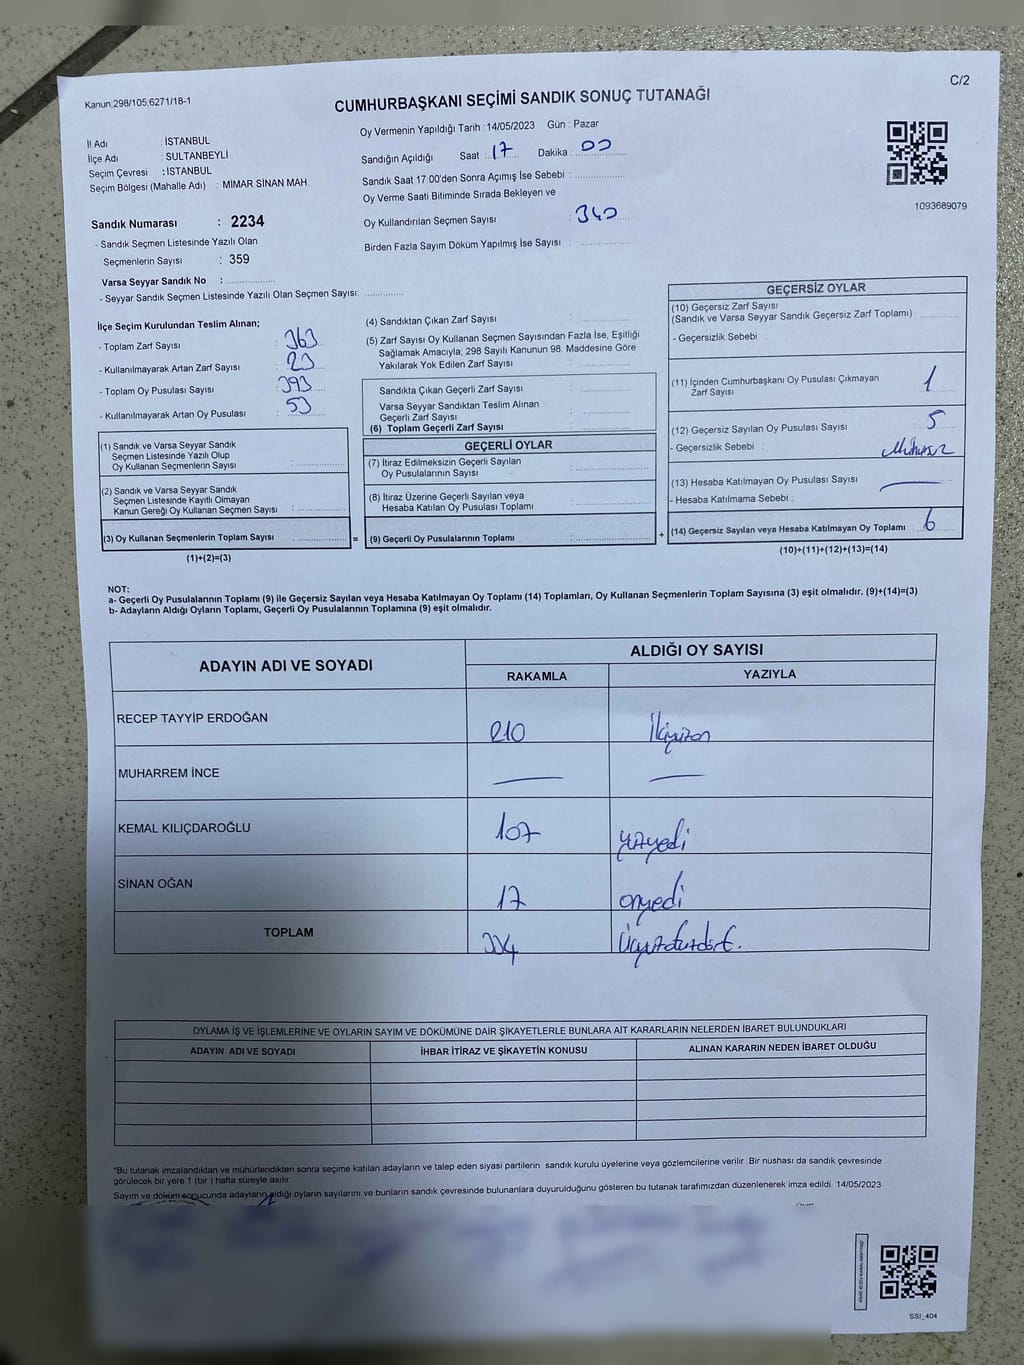 C/2
Kanun:298/105,6271/18-1
CUMHURBAŞKANI SEÇİMİ SANDIK SONUÇ TUTANAĞI
İl Adı : İSTANBUL
İlçe Adı : SULTANBEYLİ
Seçim Çevresi : İSTANBUL
Seçim Bölgesi (Mahalle Adı) : MİMAR SİNAN MAH.
Oy Vermenin Yapıldığı Tarih : 14/05/2023 Gün : Pazar
Sandığın Açıldığı Saat : 17 Dakika : 00
Sandık Saat 17:00'den Sonra Açımış İse Sebebi :
Oy Verme Saati Bitiminde Sırada Bekleyen ve
Oy Kullandırılan Seçmen Sayısı : 340
Birden Fazla Sayım Döküm Yapılmış İse Sayısı :
1093689079
Sandık Numarası : 2234
- Sandık Seçmen Listesinde Yazılı Olan
Seçmenlerin Sayısı : 359
Varsa Seyyar Sandık No :
- Seyyar Sandık Seçmen Listesinde Yazılı Olan Seçmen Sayısı:
İlçe Seçim Kurulundan Teslim Alınan;
- Toplam Zarf Sayısı : 363
- Kullanılmayarak Artan Zarf Sayısı : 23
- Toplam Oy Pusulası Sayısı : 393
- Kullanılmayarak Artan Oy Pusulası : 53
(4) Sandıktan Çıkan Zarf Sayısı :
(5) Zarf Sayısı Oy Kullanan Seçmen Sayısından Fazla İse, Eşitliği
Sağlamak Amacıyla; 298 Sayılı Kanunun 98. Maddesine Göre
Yakılarak Yok Edilen Zarf Sayısı :
Sandıkta Çıkan Geçerli Zarf Sayısı :
Varsa Seyyar Sandıktan Teslim Alınan
Geçerli Zarf Sayısı :
(6) Toplam Geçerli Zarf Sayısı :
(1) Sandık ve Varsa Seyyar Sandık
Seçmen Listesinde Yazılı Olup
Oy Kullanan Seçmenlerin Sayısı :
(2) Sandık ve Varsa Seyyar Sandık
Seçmen Listesinde Kayıtlı Olmayan
Kanun Gereği Oy Kullanan Seçmen Sayısı :
(3) Oy Kullanan Seçmenlerin Toplam Sayısı :
(1)+(2)=(3)
=
GEÇERLİ OYLAR
(7) İtiraz Edilmeksizin Geçerli Sayılan
Oy Pusulalarının Sayısı :
(8) İtiraz Üzerine Geçerli Sayılan veya
Hesaba Katılan Oy Pusulası Toplamı :
(9) Geçerli Oy Pusulalarının Toplamı :
+
GEÇERSİZ OYLAR
(10) Geçersiz Zarf Sayısı
(Sandık ve Varsa Seyyar Sandık Geçersiz Zarf Toplamı)
- Geçersizlik Sebebi :
(11) İçinden Cumhurbaşkanı Oy Pusulası Çıkmayan
Zarf Sayısı 1
(12) Geçersiz Sayılan Oy Pusulası Sayısı : 5
- Geçersizlik Sebebi : Mühürsüz
(13) Hesaba Katılmayan Oy Pusulası Sayısı :
- Hesaba Katılmama Sebebi :
(14) Geçersiz Sayılan veya Hesaba Katılmayan Oy Toplamı : 6
(10)+(11)+(12)+(13)=(14)
NOT:
a- Geçerli Oy Pusulalarının Toplamı (9) ile Geçersiz Sayılan veya Hesaba Katılmayan Oy Toplamı (14) Toplamları, Oy Kullanan Seçmenlerin Toplam Sayısına (3) eşit olmalıdır. (9)+(14)=(3)
b- Adayların Aldığı Oyların Toplamı, Geçerli Oy Pusulalarının Toplamına (9) eşit olmalıdır.
ADAYIN ADI VE SOYADI
ALDIĞI OY SAYISI
RAKAMLA YAZIYLA
RECEP TAYYİP ERDOĞAN 210 İkiyüzon
MUHARREM İNCE
KEMAL KILIÇDAROĞLU 107 yüzyedi
SİNAN OĞAN 17 onyedi
TOPLAM 334 Üçyüzotuzdört.
OYLAMA İŞ VE İŞLEMLERİNE VE OYLARIN SAYIM VE DÖKÜMÜNE DAİR ŞİKAYETLERLE BUNLARA AİT KARARLARIN NELERDEN İBARET BULUNDUKLARI
ADAYIN ADI VE SOYADI İHBAR İTİRAZ VE ŞİKAYETİN KONUSU ALINAN KARARIN NEDEN İBARET OLDUĞU
*Bu tutanak imzalandıktan ve mühürlendikten sonra seçime katılan adayların ve talep eden siyasi partilerin sandık kurulu üyelerine veya gözlemcilerine verilir. Bir nüshası da sandık çevresinde
görülecek bir yere 1 (bir ) hafta süreyle asılır.
Sayım ve döküm sonucunda adayların aldığı oyların sayılarını ve bunların sandık çevresinde bulunanlara duyurulduğunu gösteren bu tutanak tarafımızdan düzenlenerek imza edildi. 14/05/2023
SSI_404